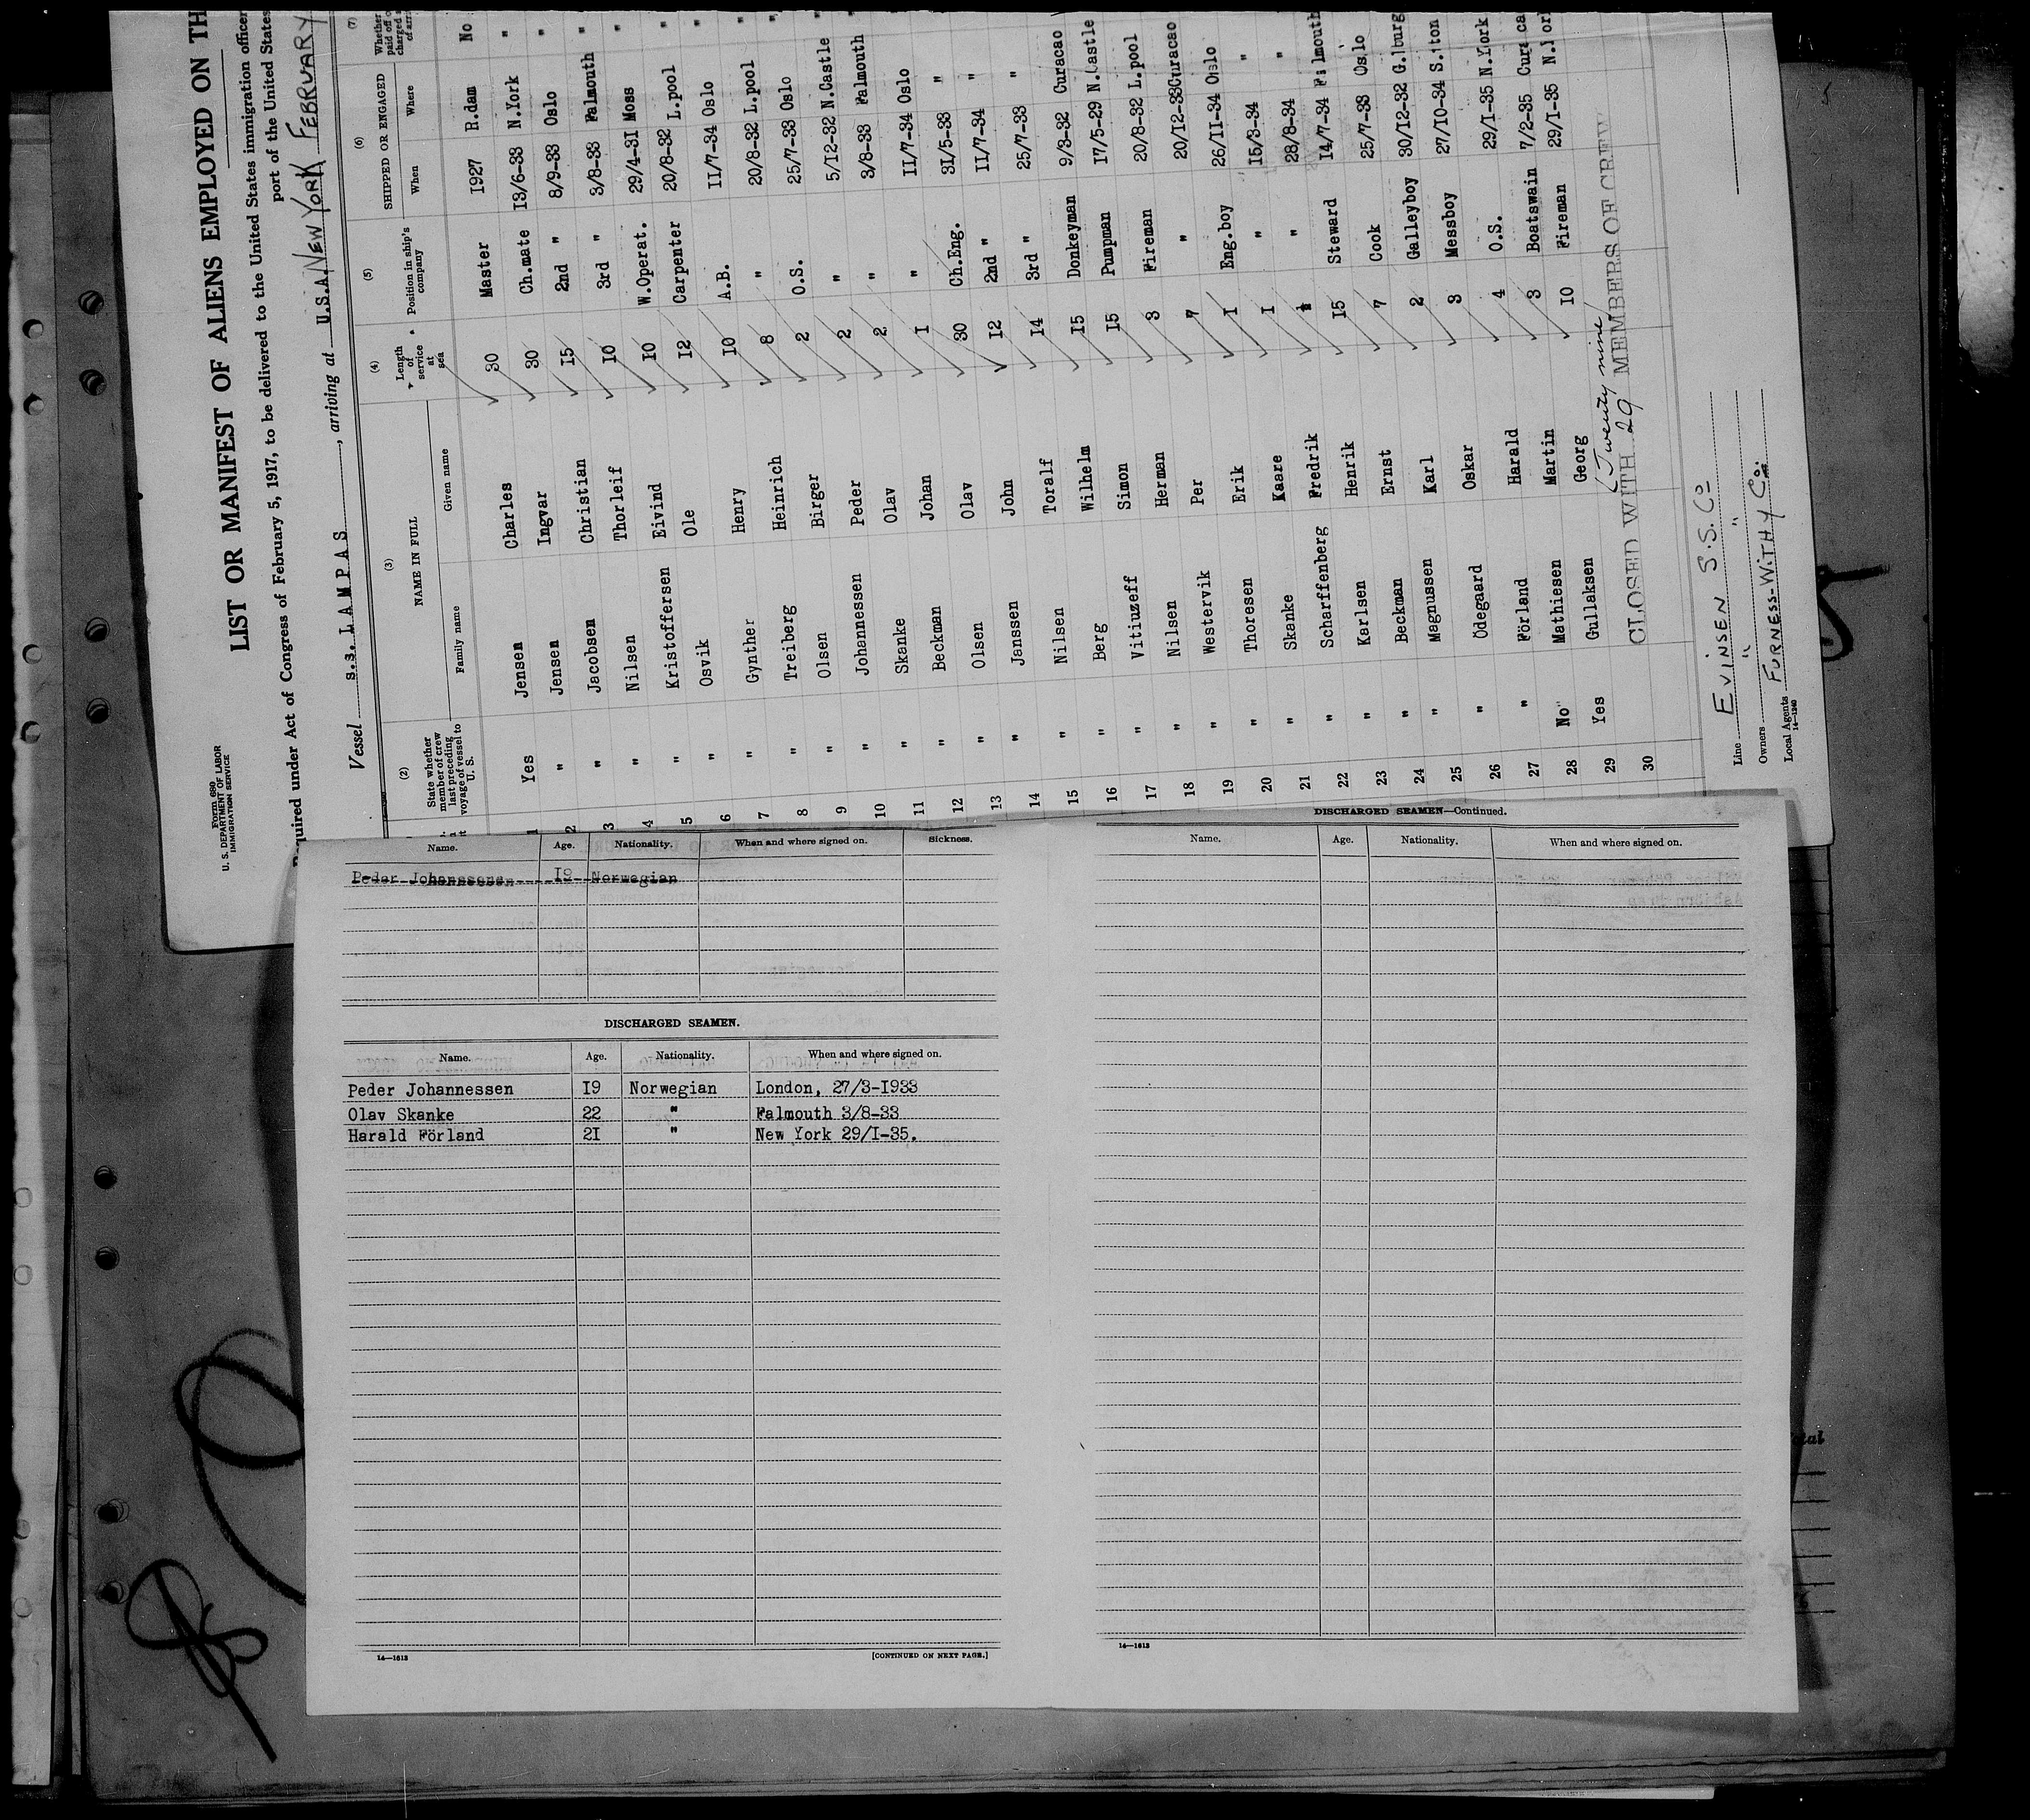 Form 680
U. S. DEPARTMENT OF LABOR
IMMIGRATION SERVICE
LIST OR MANIFEST OF ALIENS EMPLOYED ON TH
quired under Act of Congress of February 5, 1917, to be delivered to the United States immigration officer
port of the United States
Vessel s.s. LAMPAS, arriving at U.S.A. NEW YORK FEBRUARY
(2) (3) (4) (5) (6) (7)
State whether member of crew last preceding voyage of vessel to U. S. NAME IN FULL Length of service at sea Position in ship's company SHIPPED OR ENGAGED Whether paid off
Family name Given name When Where
1 Yes Jensen Charles 30 Master I927 R.dam No
2 " Jensen Ingvar 30 Ch.mate I3/6-33 N.York "
3 " Jacobsen Christian I5 2nd " 8/9-33 Oslo "
4 " Nilsen Thorleif I0 3rd " 3/8-33 Falmouth "
5 " Kristoffersen Eivind I0 W.Operat. 29/4-3I Moss "
6 " Osvik Ole I2 Carpenter 20/8-32 L.pool "
7 " Gynther Henry I0 A.B. II/7-34 Oslo "
8 " Treiberg Heinrich 8 " 20/8-32 L.pool "
9 " Olsen Birger 2 O.S. 25/7-33 Oslo "
10 " Johannessen Peder 2 " 5/I2-32 N.Castle "
11 " Skanke Olav 2 " 3/8-33 Falmouth "
12 " Beckman Johan I " II/7-34 Oslo
13 " Olsen Olav 30 Ch.Eng. 3I/5-33 "
14 " Janssen John I2 2nd " II/7-34 "
15 " Nilsen Toralf I4 3rd " 25/7-33 "
16 " Berg Wilhelm I5 Donkeyman 9/3-32 Curacao
17 " Vitiuzeff Simon I5 Pumpman I7/5-29 N.Castle
18 " Nilsen Herman 3 Fireman 20/8-32 L.pool
19 " Westervik Per 7 " 20/I2-33 Curacao
20 " Thoresen Erik I Eng.boy 26/II-34 Oslo
21 " Skanke Kaare I " I5/3-34 "
22 " Scharffenberg Fredrik ½ " 28/8-34 "
23 " Karlsen Henrik I5 Steward I4/7-34 Falmouth
24 " Beckman Ernst 7 Cook 25/7-33 Oslo
25 " Magnussen Karl 2 Galleyboy 30/I2-32 G.burg
26 " Ödegaard Oskar 3 Messboy 27/I0-34 S.ton
27 " Förland Harald 4 O.S. 29/I-35 N.York
28 No" Mathiesen Martin 3 Boatswain 7/2-35 Curaca
29 Yes Gullaksen Georg I0 Fireman 29/I-35 N.Yor
30
(Twenty nine)
CLOSED WITH 29 MEMBERS OF CREW
Line EVINSEN S.S. Co
Owners " "
Local Agents FURNESS-WITHY Co.
14—1240
Name. Age. Nationality. When and where signed on. Sickness.
Peder Johannessen I9 Norwegian
DISCHARGED SEAMEN.
Name. Age. Nationality. When and where signed on.
Peder Johannessen I9 Norwegian London, 27/3-I933
Olav Skanke 22 " Falmouth 3/8-33
Harald Förland 2I " New York 29/I-35.
14—1613
[CONTINUED ON NEXT PAGE.]
DISCHARGED SEAMEN—Continued.
Name. Age. Nationality. When and where signed on.
14—1613
otal